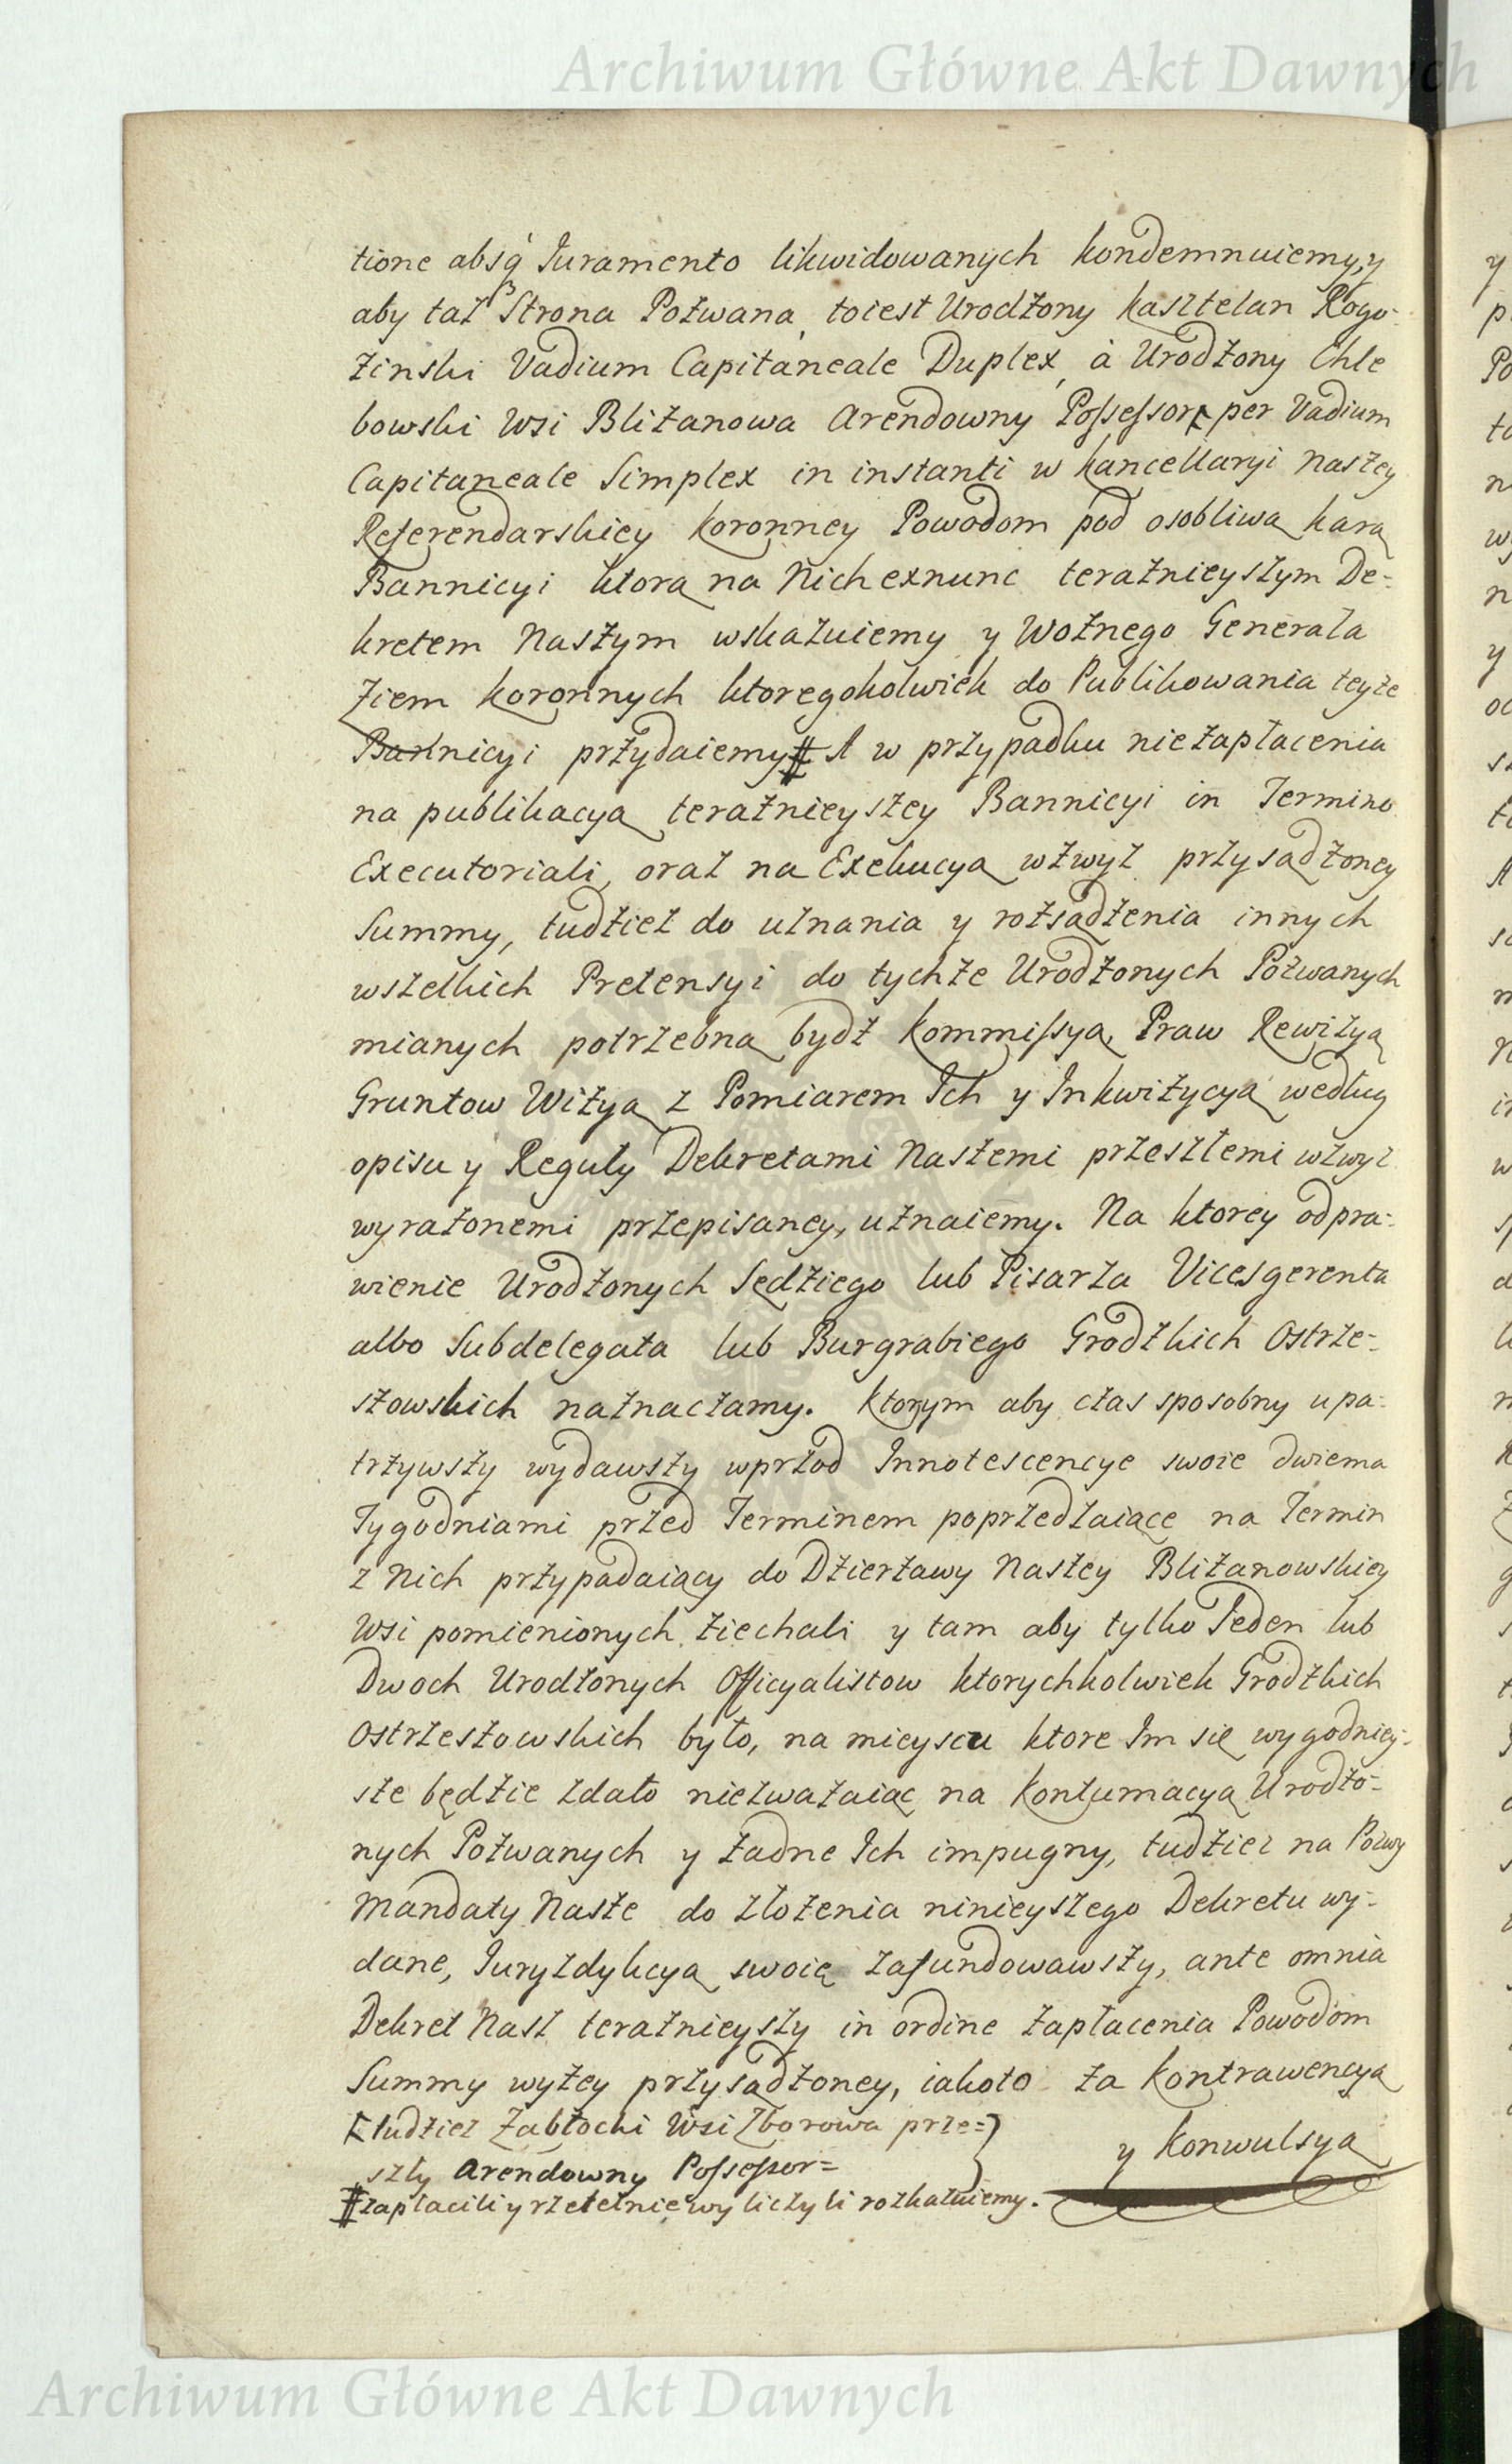 Archiwum Główne Akt Dawnych
tione absq́ Juramento likwidowanych kondemnuiemy, y
aby taż Strona Pożwana, toiest Urodżony Kasztelan Rogo-
żinski Vadium Capitaneale Duplex, à Urodżony Chle
bowski Wsi Bliżanowa Arendowny Possessor per Vadium
Capitaneale Simplex in instanti w Kancellaryi Naszey
Referendarskiey Koronney Powodom pod osobliwą karą
Bannicyi ktorą na Nich exnunc terażnieyszym De-
kretem Naszym wskazuiemy y Wożnego Generała
Ziem Koronnych ktoregokolwiek do Publikowania teyże
Bannicyi przydaiemy # A w przypadku nieżapłacenia
na publikacyą terażnieyszey Bannicyi in Termino
Executoriali, oraz na Exekucyą wżwyż przysądżoney
Summy, tudżież do uznania y rozsądżenia innych
wszelkich Pretensyi do tychże Urodżonych Pożwanych
mianych potrzebną bydż Kommissyą, Praw Rewizyą
Gruntow Wizyą z Pomiarem Ich y Inkwizycyą według
opisu y Reguły Dekretami Naszemi przeszłemi wżwyż
wyrażonemi przepisaney, użnaiemy. Na ktorey odpra-
wienie Urodżonych Sędziego lub Pisarza Vicesgerenta
albo Subdelegata lub Burgrabiego Grodzkich Ostrze-
szowskich naznaczamy. Ktorym aby czas sposobny upa-
trzywszy wydawszy wprzod Innotescencye swoie dwiema
Tygodniami przed Terminem poprzedzaiące na Termin
z Nich przypadaiący do Dzierżawy Naszey Bliżanowskiey
Wsi pomienionych ziechali y tam aby tylko Jeden lub
Dwoch Urodżonych Officyalistow ktorychkolwiek Grodzkich
Ostrzeszowskich było, na mieyscu ktore Im się wygodniey-
sze będzie zdało nieżważaiąc na Kontumacyą Urodżo-
nych Pożwanych y żadne Ich impugny, tudżież na Pozwy
Mandaty Nasze do złożenia ninieyszego Dekretu wy-
dane, Juryzdykcyą swoię zafundowawszy, ante omnia
Dekret Nasz terażnieyszy in ordine żapłacenia Powodom
Summy wyżey przysądżoney, iakoto za Kontrawencyą
tudżież Zabłocki Wsi Zborowa prze-
szły Arendowny Possessor =
# zapłacili y rzetelnie wyliczyli rozkazuiemy.
y Konwulsyą
Archiwum Główne Akt Dawnych